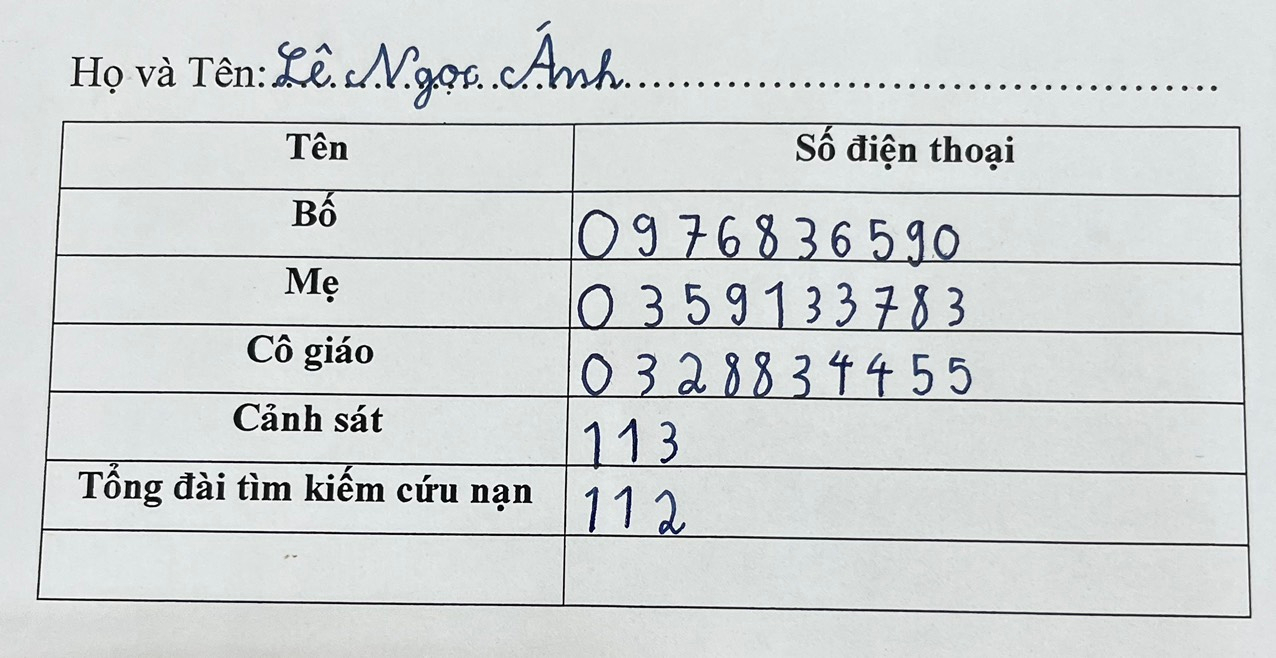 Họ và Tên: Lê Ngọc Ánh
Tên Số điện thoại
Bố 0976836590
Mẹ 0359133783
Cô giáo 0328834455
Cảnh sát 113
Tổng đài tìm kiếm cứu nạn 112